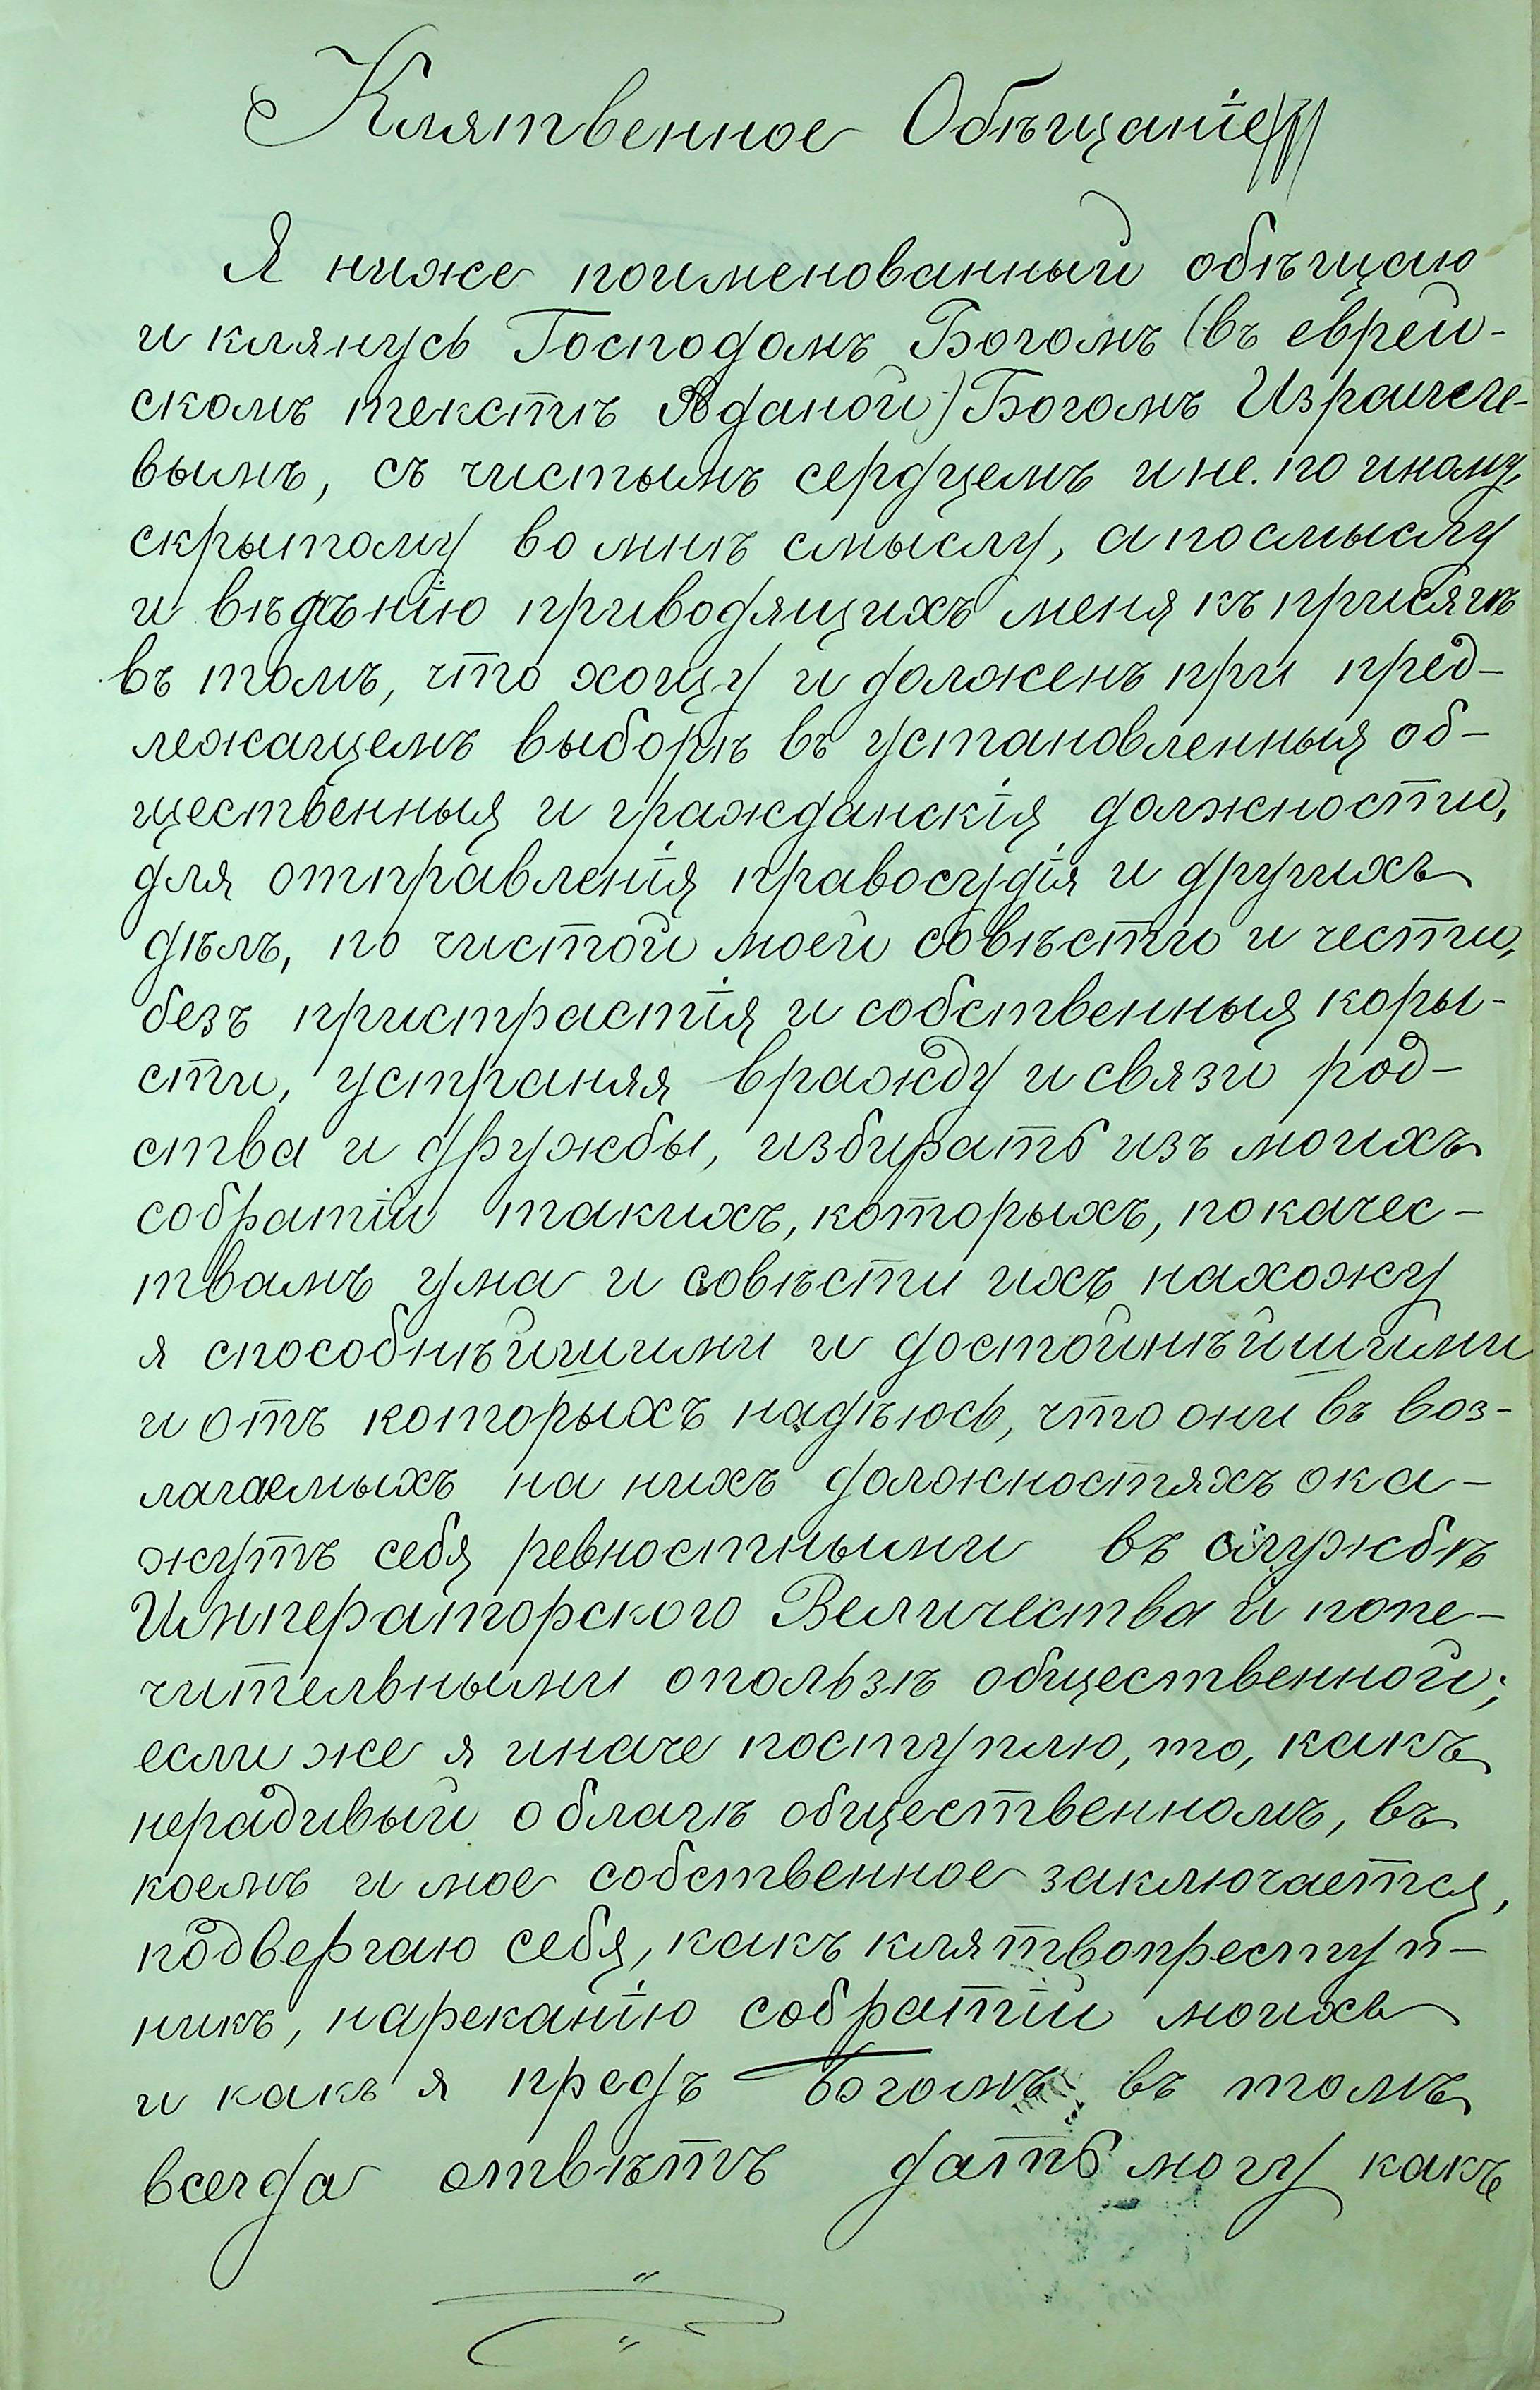 Клятвенное Обѣщаніе
Я ниже поименованный обѣщаю
и клянусь Господомъ Богомъ (въ еврей-
скомъ текстѣ Аданой) Богомъ Израиле-
вымъ, съ чистымъ сердцемъ и не по иному,
скрытому во мнѣ смыслу, а по смыслу
и вѣдѣнію приводящихъ меня къ присягѣ
въ томъ, что хощу и долженъ при пред-
лежащемъ выборѣ въ установленныя об-
щественныя и гражданскія должности,
для отправленія правосудія и другихъ
дѣлъ, по чистой моей совѣсти и чести,
безъ пристрастія и собственныя коры-
сти, устраняя вражду и связи род-
ства и дружбы, избирать изъ моихъ
собратій такихъ, которыхъ, по качес-
твамъ ума и совѣсти ихъ нахожу
я способнѣйшими и достойнѣйшими
и отъ которыхъ надѣюсь, что они въ воз-
лагаемыхъ на нихъ должностяхъ ока-
жутъ себя ревностными въ службѣ
Императорского Величества и попе-
чительными о пользѣ общественной;
если же я иначе поступлю, то, какъ
нерадивый о благѣ общественномъ, въ
коемъ и мое собственное заключается,
подвергаю себя, какъ клятвопреступ-
никъ, нареканію собратій моихъ
и какъ я предъ Богомъ въ томъ
всегда отвѣтъ дать могу какъ